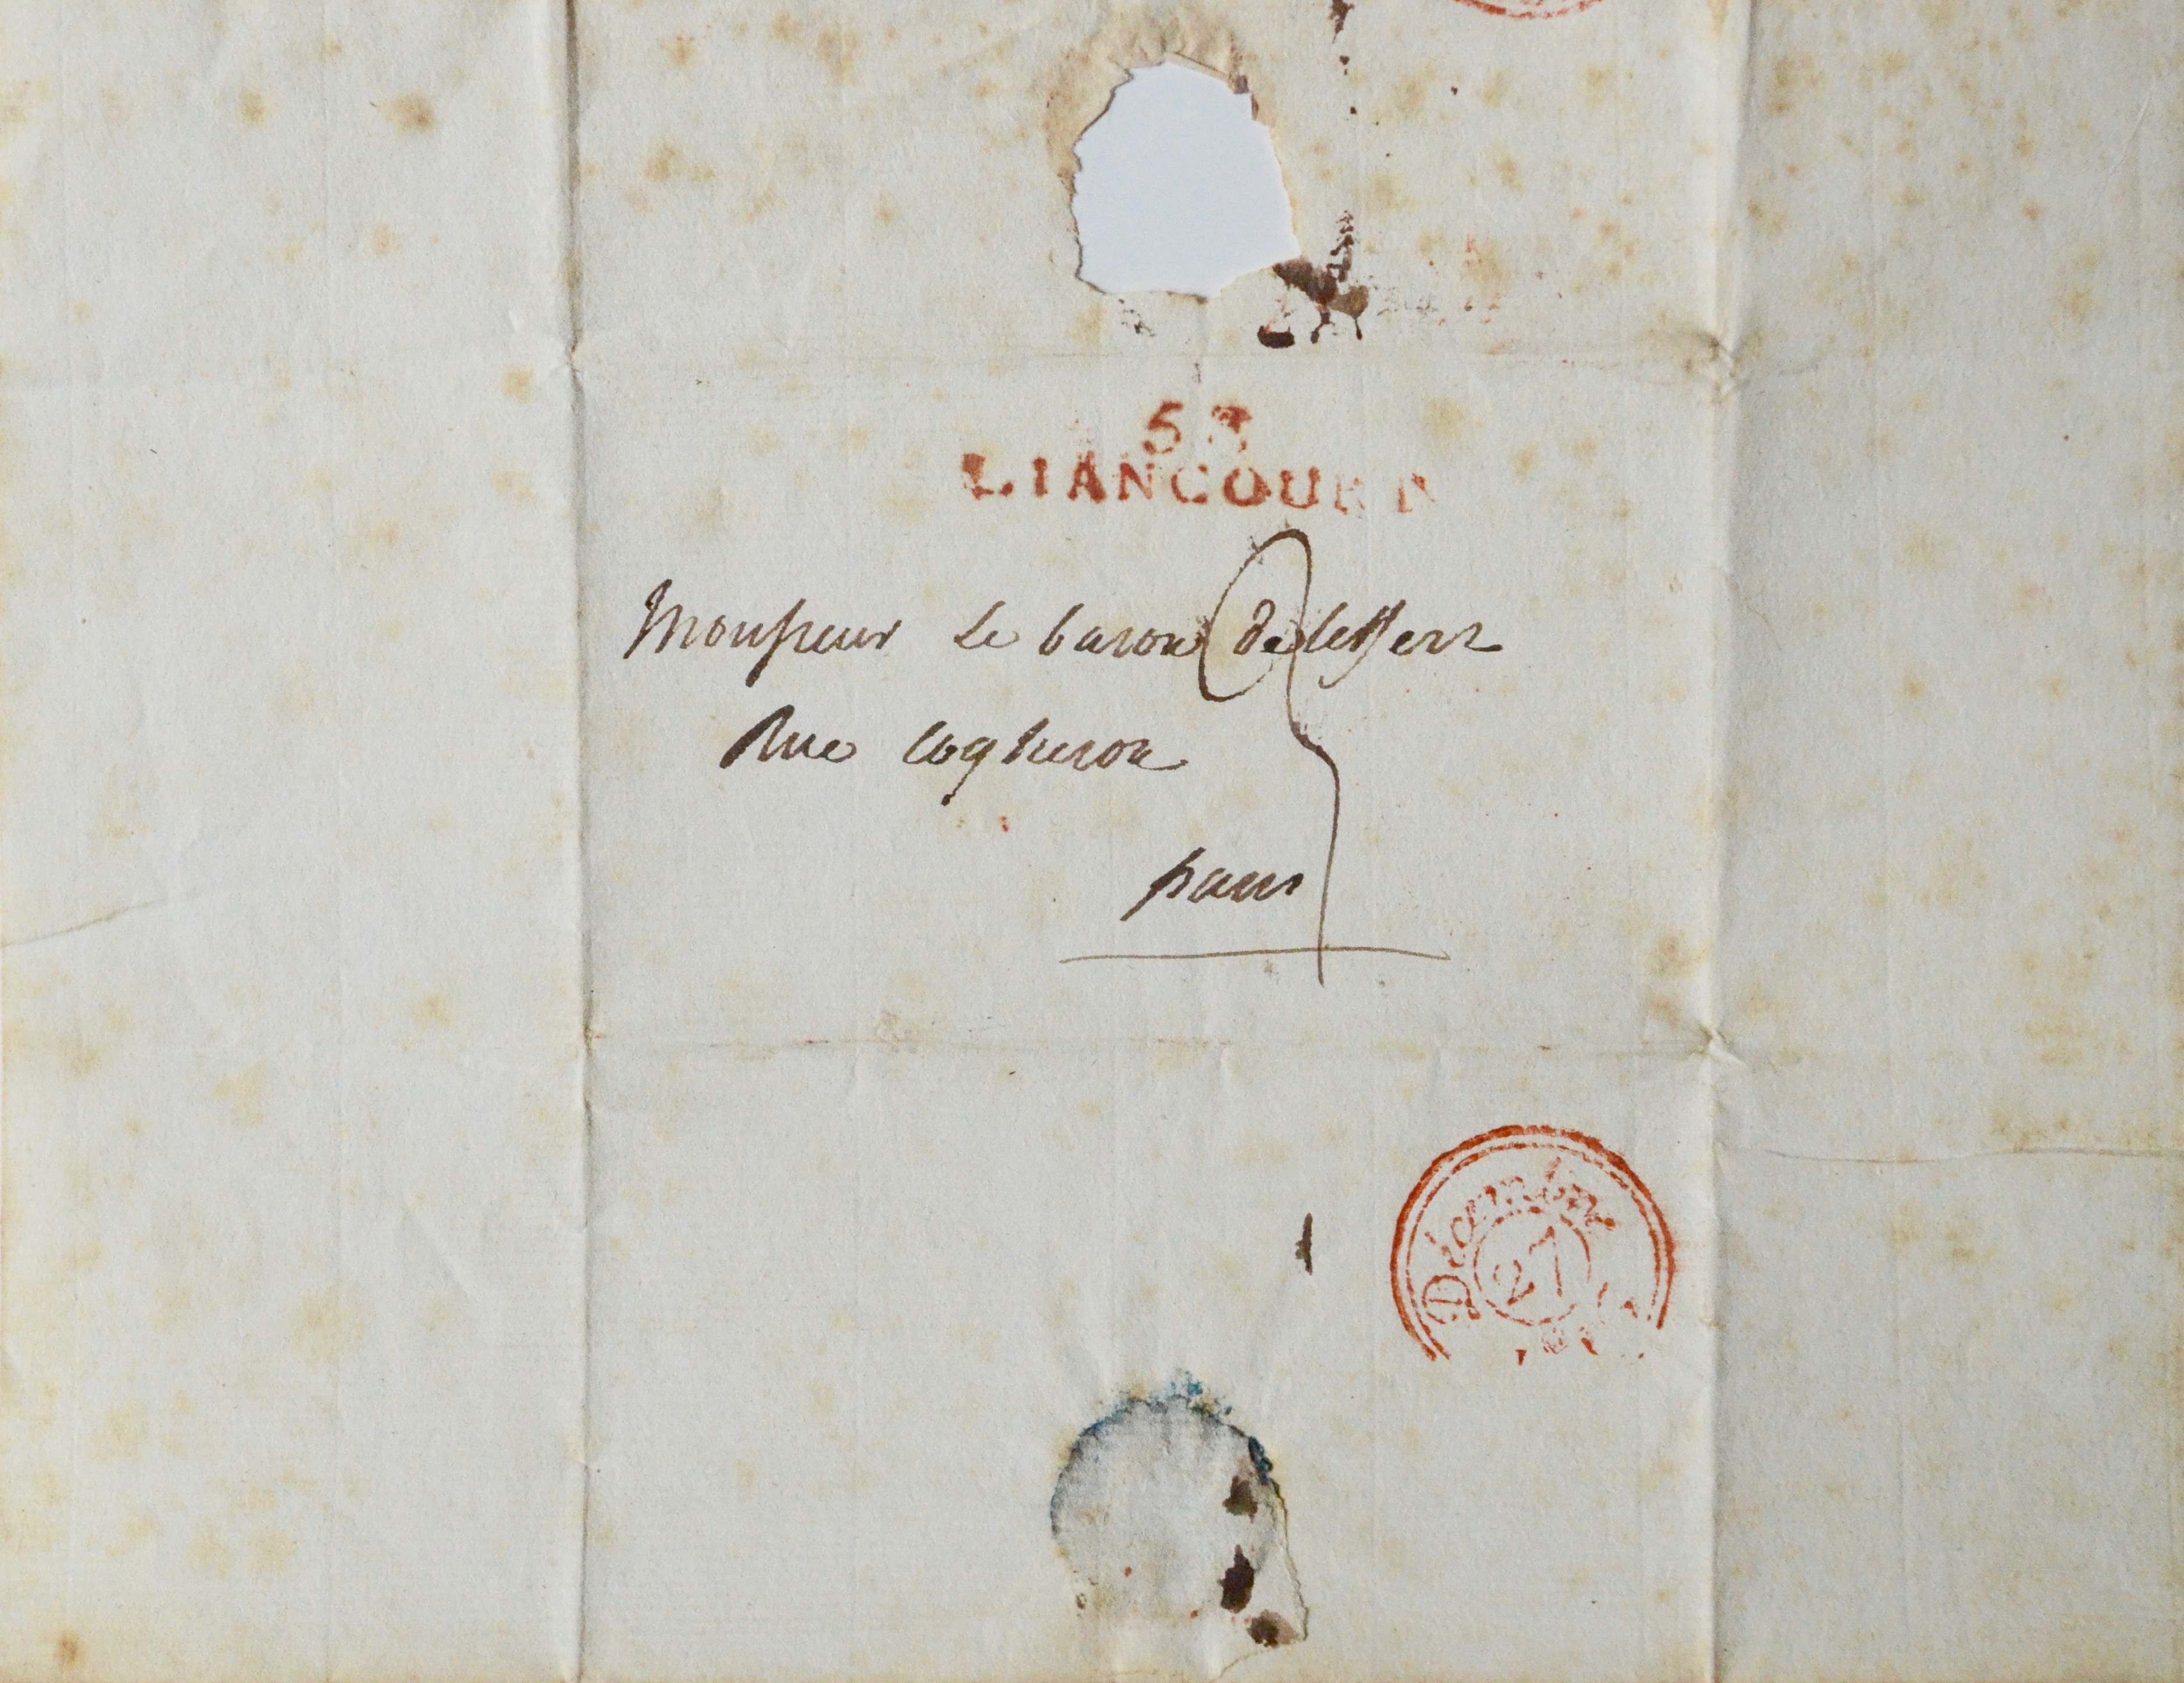 58
LIANCOURT
Monsieur Le baron delessert
Rue Coqheron
paris
Décembre
27